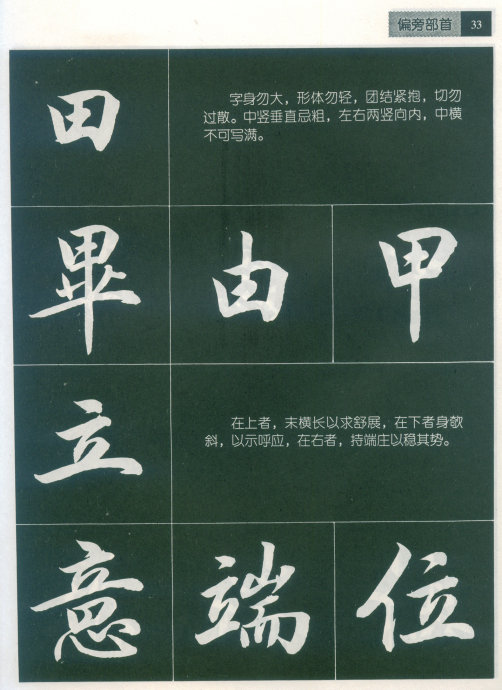 偏旁部首 33
田
字身勿大，形体勿轻，团结紧抱，切勿
过散。中竖垂直忌粗，左右两竖向内，中横
不可写满。
畢 由 甲
立
在上者，末横长以求舒展，在下者身欹
斜，以示呼应，在右者，持端庄以稳其势。
意 端 位